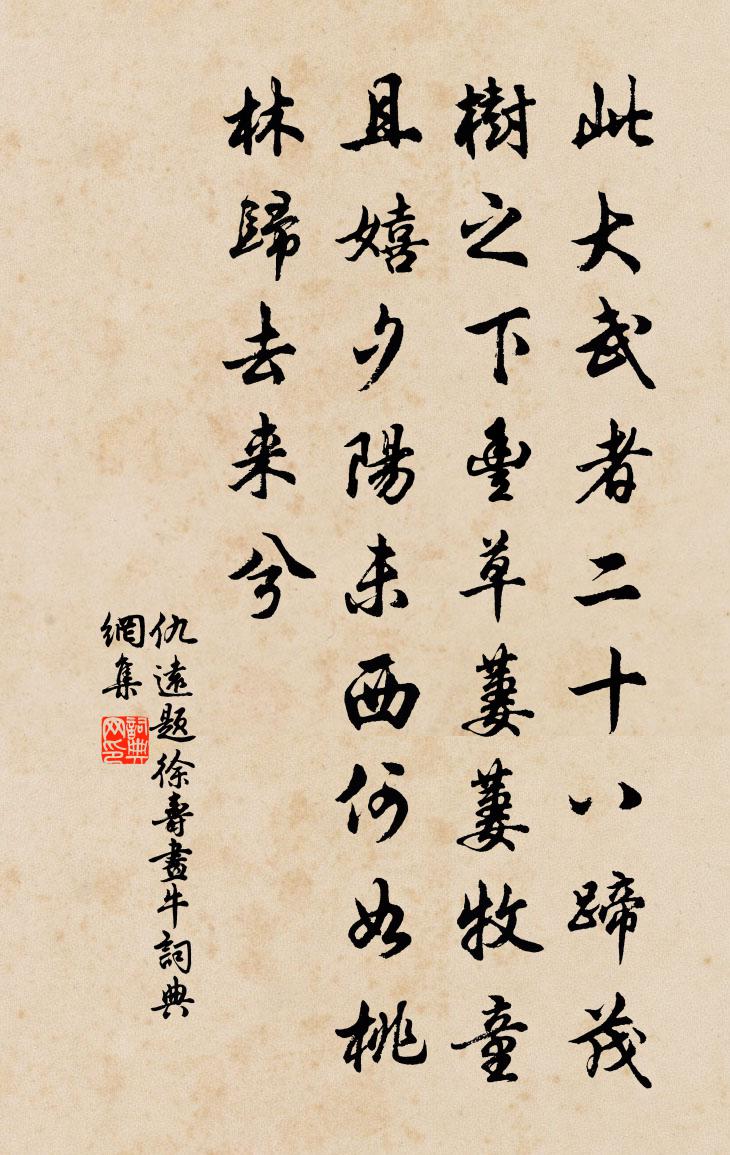 此大武者二十八蹄茂
樹之下豐草萋萋牧童
且嬉夕陽未西何如桃
林歸去来兮
仇遠題徐壽畫牛詞典
網集
詞典
网印